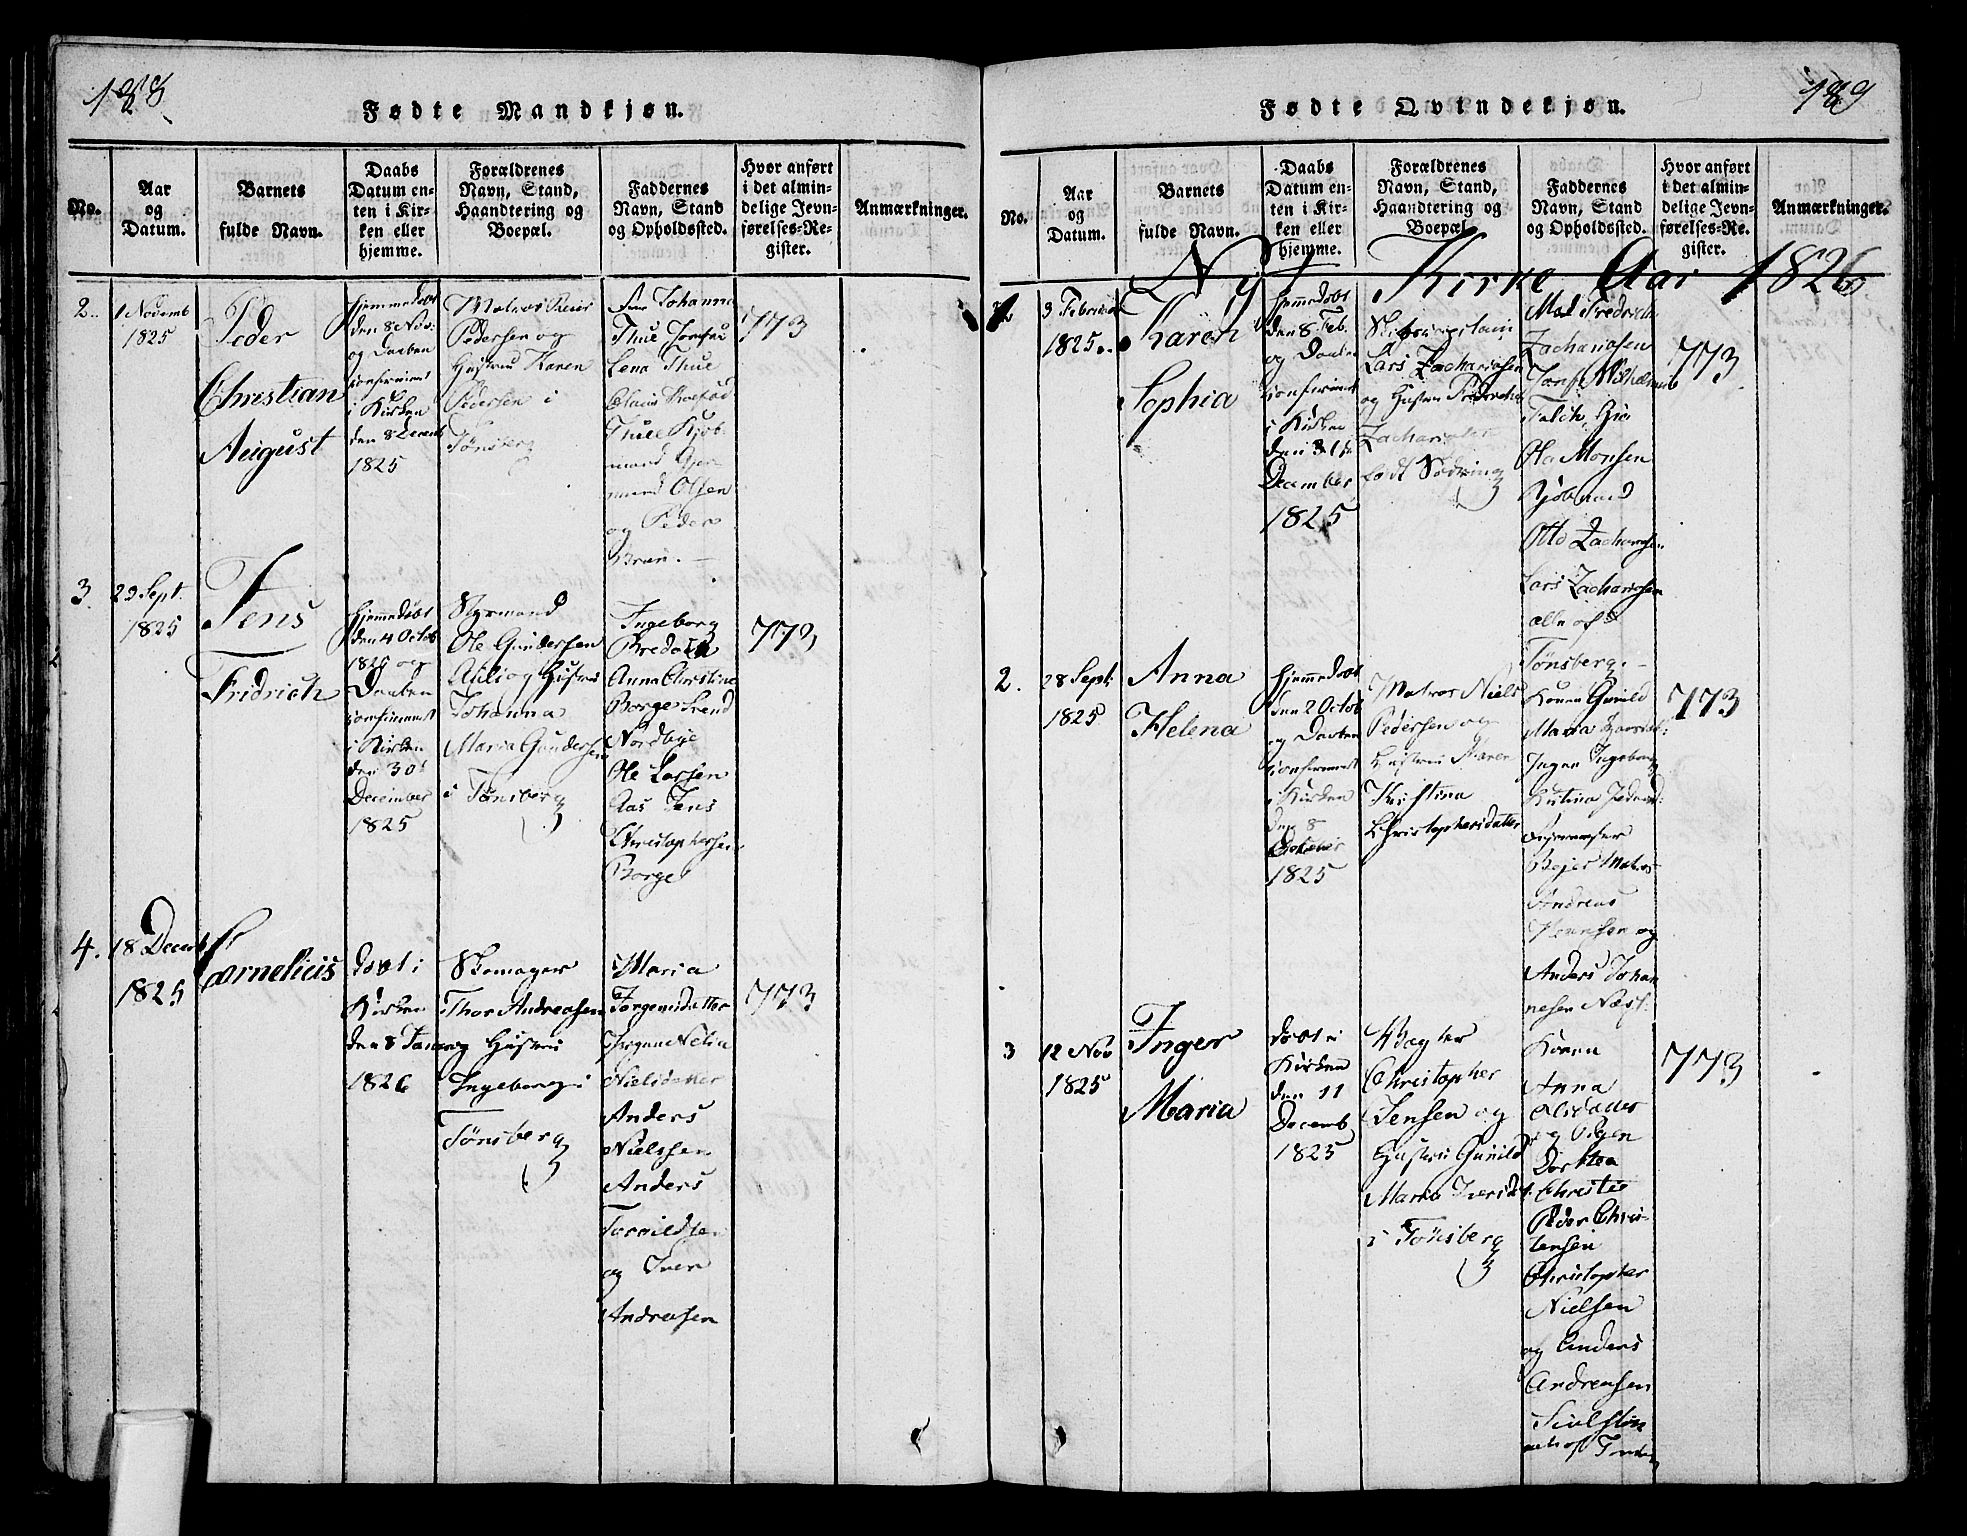 188
Fødte Mandkjøn.
No.
Aar
og
Datum.
Barnets
fulde Navn.
Daabs
Datum en-
ten i Kir-
ken eller
hjemme.
Forældrenes
Navn, Stand,
Haandtering og
Boepæl.
Faddernes
Navn, Stand
og Opholdssted.
Hvor anført
i det almin-
delige Jevn-
førelses-Re-
gister.
Anmærkninger.
2.
1 Novemb
1825
Peder
Christian
August
hjemmedøbt
den 8 Nov:
og Daaben
confirmeret
i Kirken
den 8 Decemb
1825
Matros
Pedersen og
Hustru Karen
Pedersen i
Tønsberg
Johanna
Thue Jomfru
Lena Thue
Claus
Thue Kjøb-
mand
Olsen
og Peder
Brun.
773
3.
29 Sept.
1825
Jens
Fridrich
hjemmedøbt
den 4 Octob
1825 og
Daaben
confirmeret
i Kirken
den 30t
December
1825
Styrmand
Ole Gundersen
og Hustru
Johanna
Maria Gundersen
i Tønsberg
Ingeborg
Bredock
Anna Christine
Borge Svend
Nordbye
Ole Larsen
Aas Jens
Christophersen
Borge
773
4.
18 Decemb
1825
Cornelius
døbt i
Kirken
den 8 Janr
1826
Skomager
Thor Andreasen
og Hustru
Ingeborg i
Tønsberg
Maria
Jørgensdatter
Nielsdatter
Anders
Nielssen
Anders
Torvildsen
og Iver
Andreasen
773
189
Fødte Qvindekjøn.
No.
Aar
og
Datum.
Barnets
fulde Navn.
Daabs
Datum en-
ten i Kir-
ken eller
hjemme.
Forældrenes
Navn, Stand,
Haandtering og
Boepæl.
Faddernes
Navn, Stand
og Opholdssted.
Hvor anført
i det almin-
delige Jevn-
førelses-Re-
gister.
Anmærkninger.
Nyt Kirke Aar 1826
3 Februar
1825.
Karen
Sophia
hjemmedøbt
den 8 Feb.
og Daaben
confirmeret
i Kirken
den 31te
December
1825
Skibscapitain
Lars Zachariasen
og Hustru
Zachariasen
født Sødring
Mad Fredrich
Zachariasen
Jomf Wilhelmine
Falch
Ole Monsen
Kjøbmand
Otto Zachariasen
Lars Zachariasen
alle af
Tønsberg.
773
2.
28 Sept.
1825
Anna
Helena
hjemmedøbt
den 2 Octob
og Daaben
confirmeret
i Kirken
den 8
1825
Matros Niels
Pedersen og
Hustru Karen
Kristina
Christophersdatter
Konen Gunild
Maria
Ingeborg
Beyer Matros
Andreas
Hansen og
Anders Johan
nesen Næs
773
3
12 Nov
1825
Inger
Maria
døbt i
Kirken
den 11
Decemb
1825
Bagter
Christopher
Jensen og
Hustru Gunild
Maria Iversdt.
i Tønsberg
Konen
Anna
Olsdatter
og Pigen
Dorthea
Christie
Peder Chris-
tensen
Christopher
Nielsen
og Anders
Andreasen
773